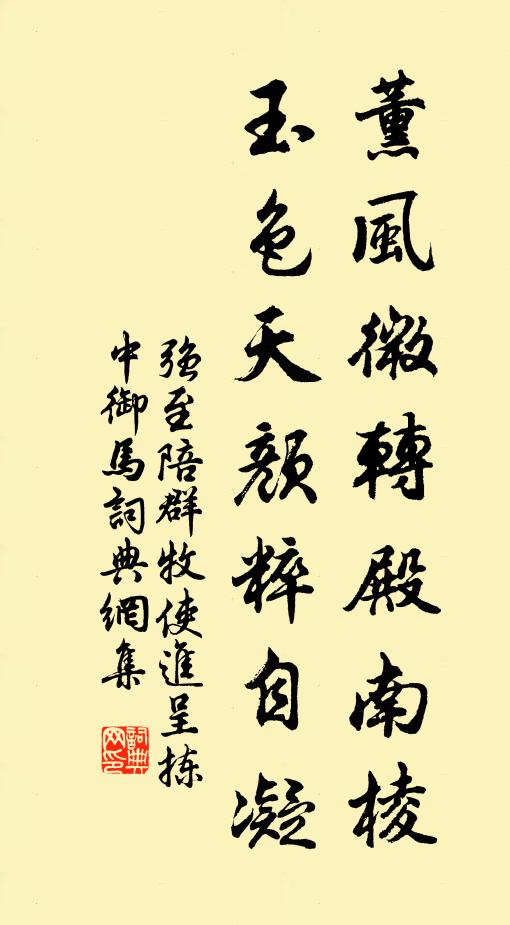 薰風微轉殿南棱
玉色天顏粹自凝
強至陪群牧使進呈揀
中御馬詞典網集
詞典
網印